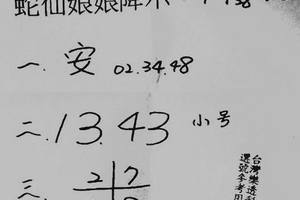 蛇仙娘娘降示
一. 安 02.34.48
二. 13.43 小号
三. 2 7
台灣樂透
選號參考用